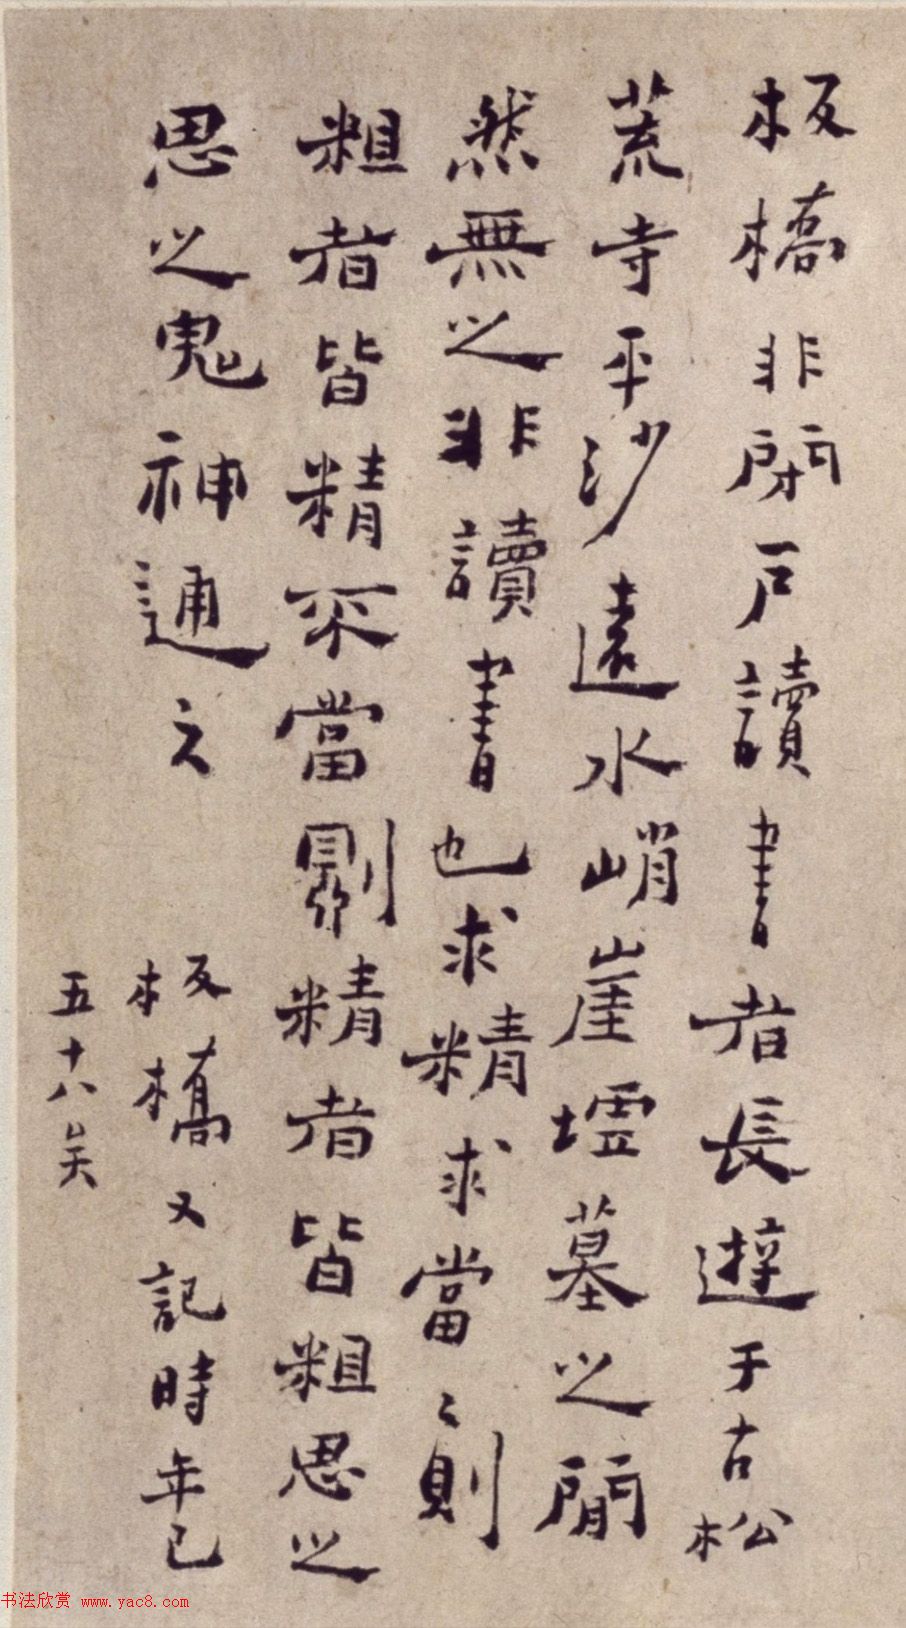 板橋非閉戶讀書者長遊于古松
荒寺平沙遠水峭崖墟墓之間
然無之非讀書也求精求當〻則
粗者皆精不當則精者皆粗思之
思之鬼神通之
板橋又記時年已
五十八矣
书法欣赏 www.yac8.com